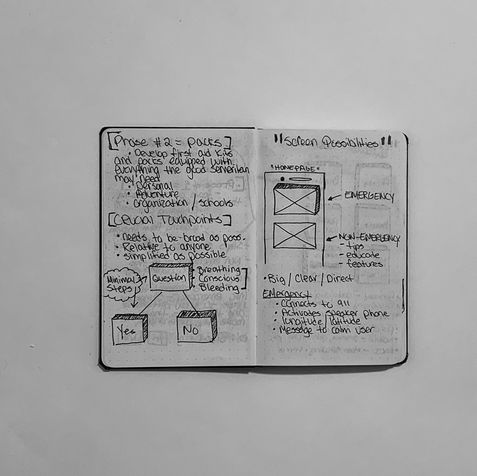 [Phase #2 = packs]
• Develop first aid kits
and packs equipped with
everything the good samaritan
may need
• Personal
• Adventure
• organization / schools
[Crucial Touchpoints]
• needs to be broad as poss.
• Relative to anyone
• simplified as possible
Minimal
Steps
Question
• Breathing
• Conscious
• Bleeding
Yes
No
"Screen Possibilities"
"HOMEPAGE"
EMERGENCY
NON-EMERGENCY
- tips
- educate
- features
• Big / Clear / Direct
Emergency
• Connects to 911
• Activates speaker phone
longitude / latitude
• Message to calm user